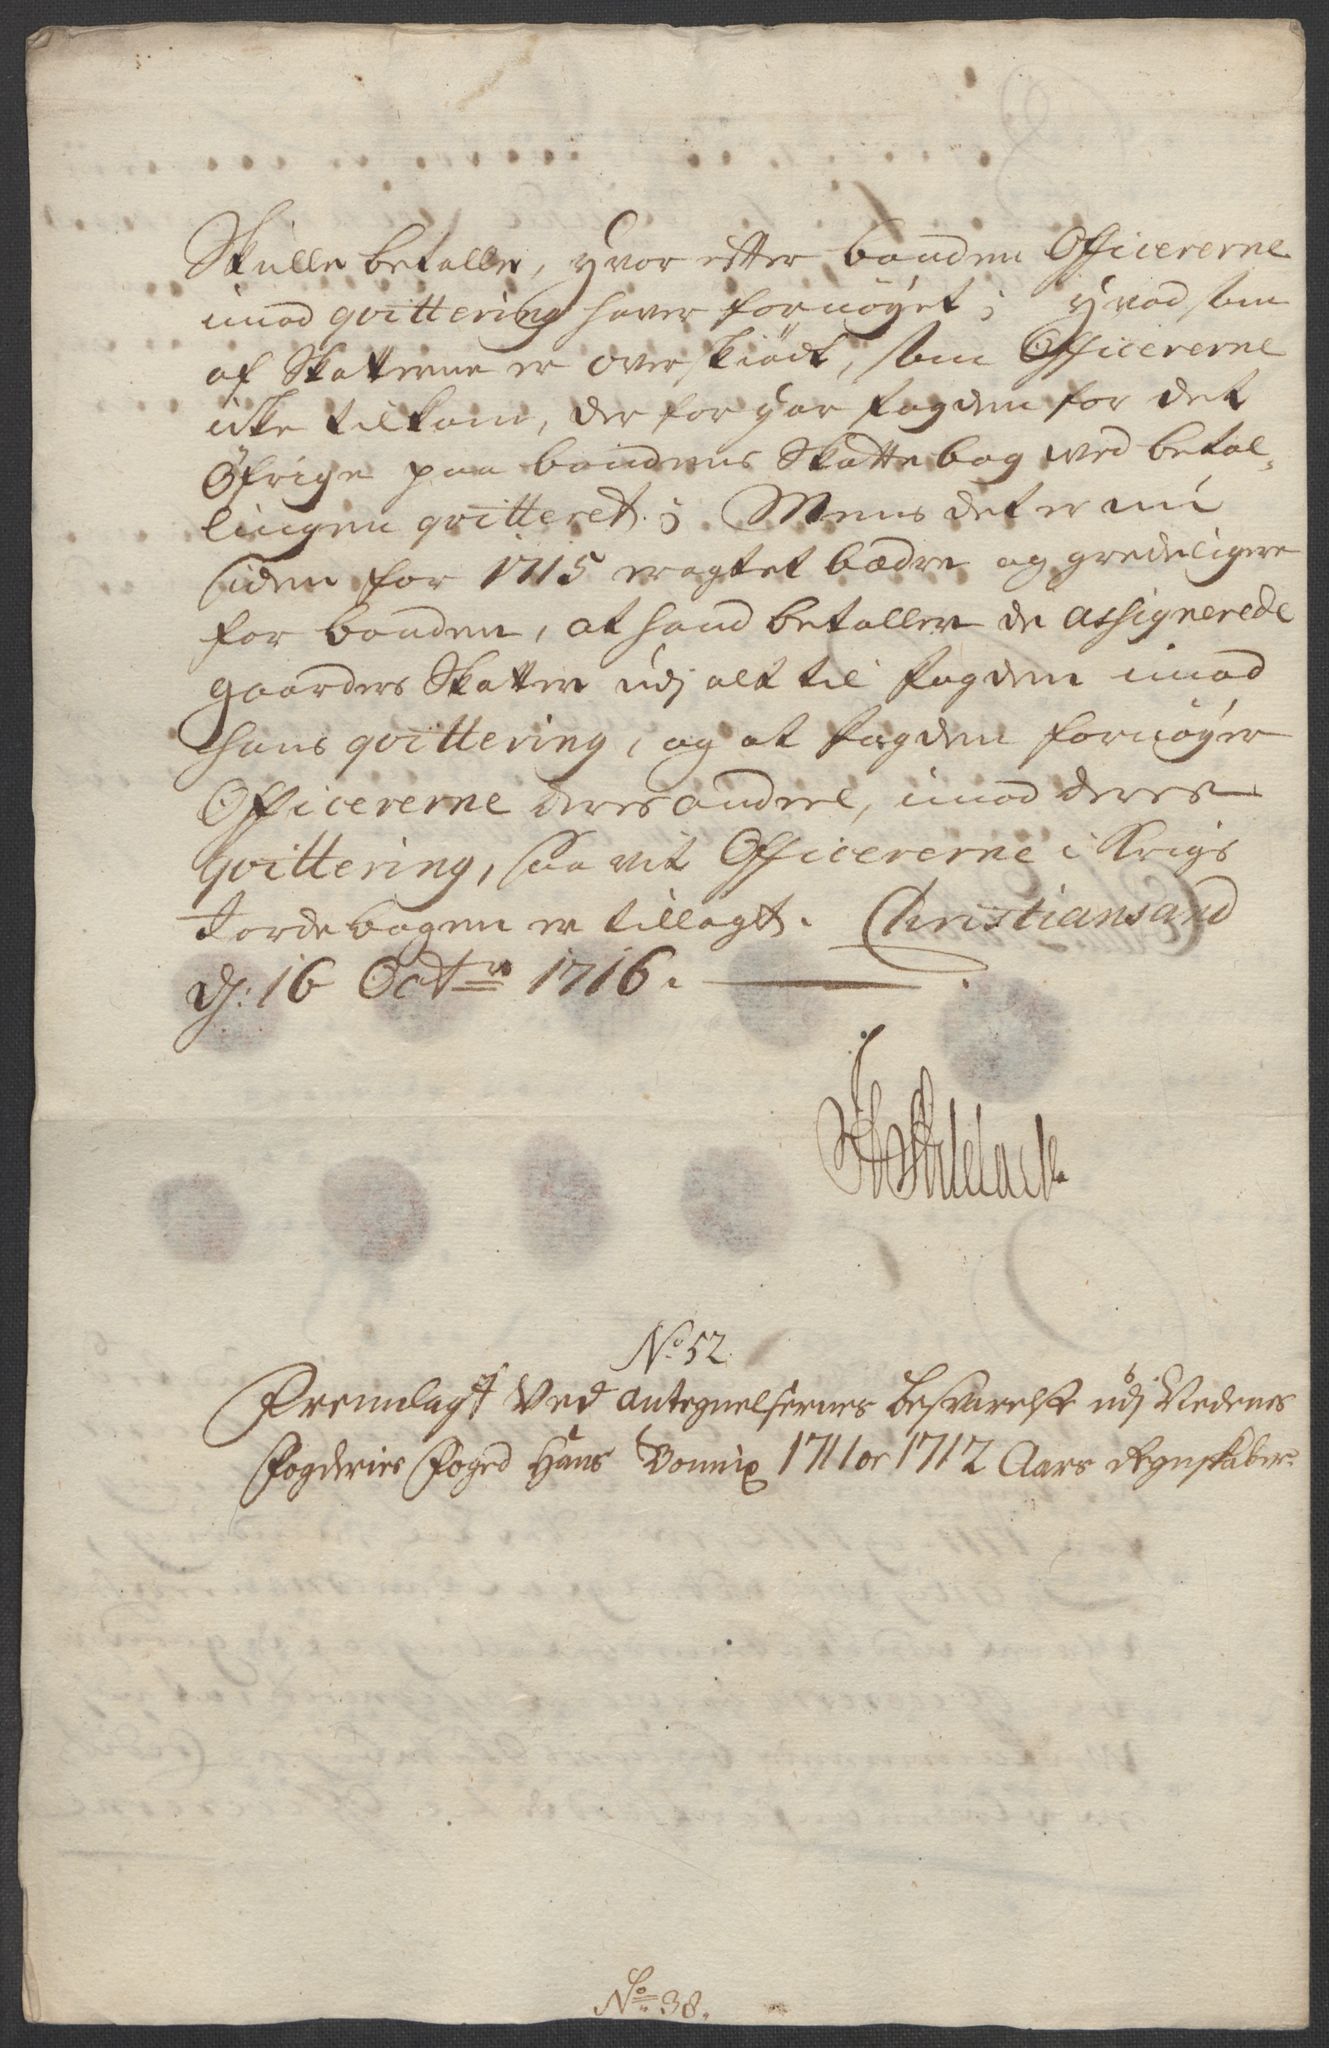 Skulle betalle, hvor etter bonden Officererne
imod qvittering haver fornøyet; hvad som
af Skatterne er overskiødt, som Officererne
icke tilkom, der for har fogden for det
Øfrige paa bondens Skattebog ved betal-
lingen qvitteret; Mens det er nu
siden for 1715 eragtet bædre og gredeligere
for bonden, at hand betaller de assignerede
gaarders Skatter udj alt til fogden imod
hans qvittering, og at fogden fornøyer
Officererne deres andeel, imod deres
qvittering, saa vit Officererne i Krigs
Jordebogen er tillagt. Christiansand
dj: 16 Octr 1716.
No 52.
Fremlagt Ved antegnelsernes besvarelse udj Nedenes
fogderies foged Hans Bonnix 1711 oc 1712 Aars Regnskaber.
No 38.